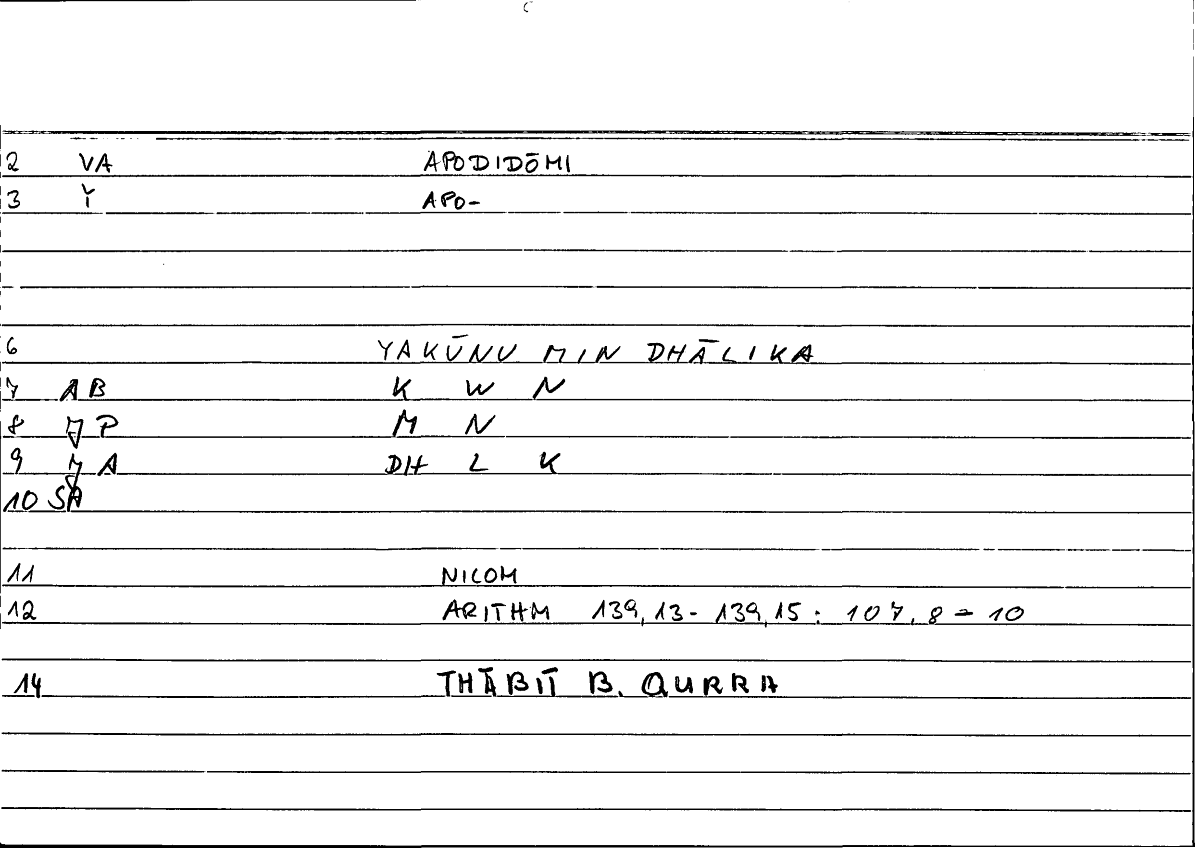 2 VA APODIDŌMI
3 Y APO-
6 YAKŪNU MIN DHĀLIKA
7 AB K W N
8 JP M N
9 JA DH L K
10 SA
11 NICOM
12 ARITHM 139,13-139,15: 107,8-10
14 THĀBIT B. QURRA